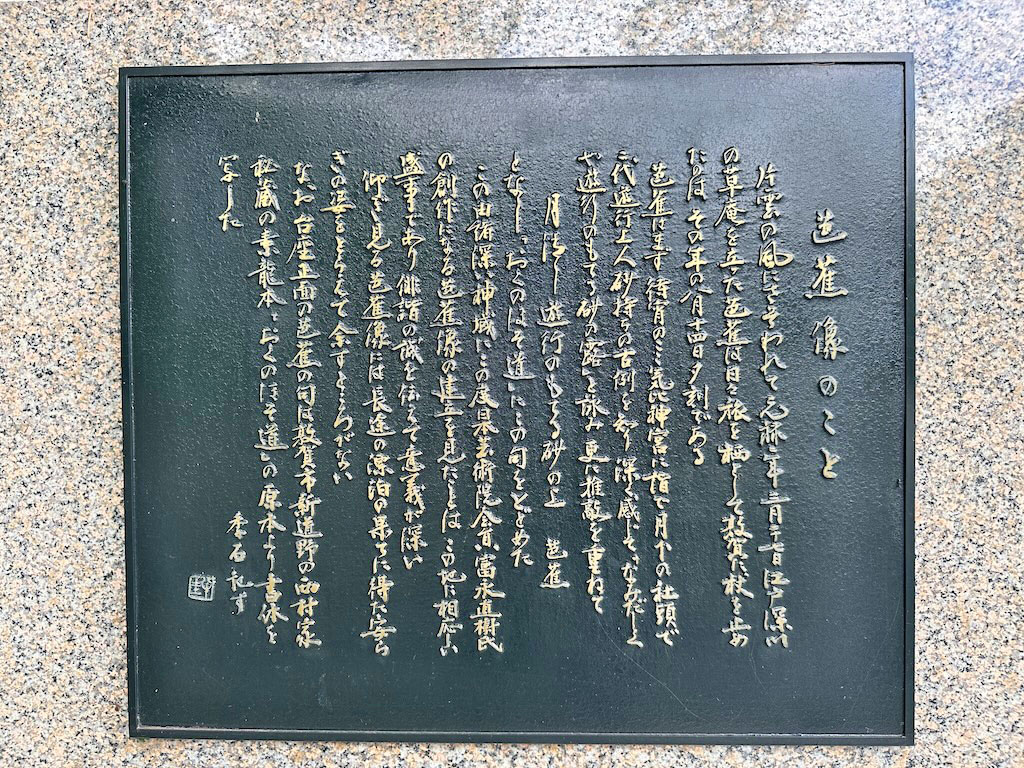 芭蕉像のこと
片雲の風にさそわれて元禄二年三月二十七日江戸深川
の草庵を立った芭蕉は日々旅を栖として敦賀に杖を止め
たのは その年の八月十四日夕刻である
芭蕉は先ず 待宵の 気比神宮に詣で月下の社頭で
二代遊行上人砂持ちの古例を知り 深く感じて、なみだしくや
遊行のもてる砂の露、と詠み 更に推敲を重ねて
月清し 遊行のもてる砂の上 芭蕉
となし、「おくのほそ道」にこの句をとどめた
この由緒深い神域にこの度日本芸術院会員、富永直樹氏
の創作になる芭蕉像の建立を見たことは この地に相応しい
盛事であり 俳諧の誠を伝えて意義が深い
仰ぎ見る芭蕉像には長途の漂泊の果てに得た安ら
ぎの姿をとらえて余すところがない
なお 台座正面の芭蕉の句は敦賀市新道野の西村家
秘蔵の素龍本「おくのほそ道」の原本より書体を
写した